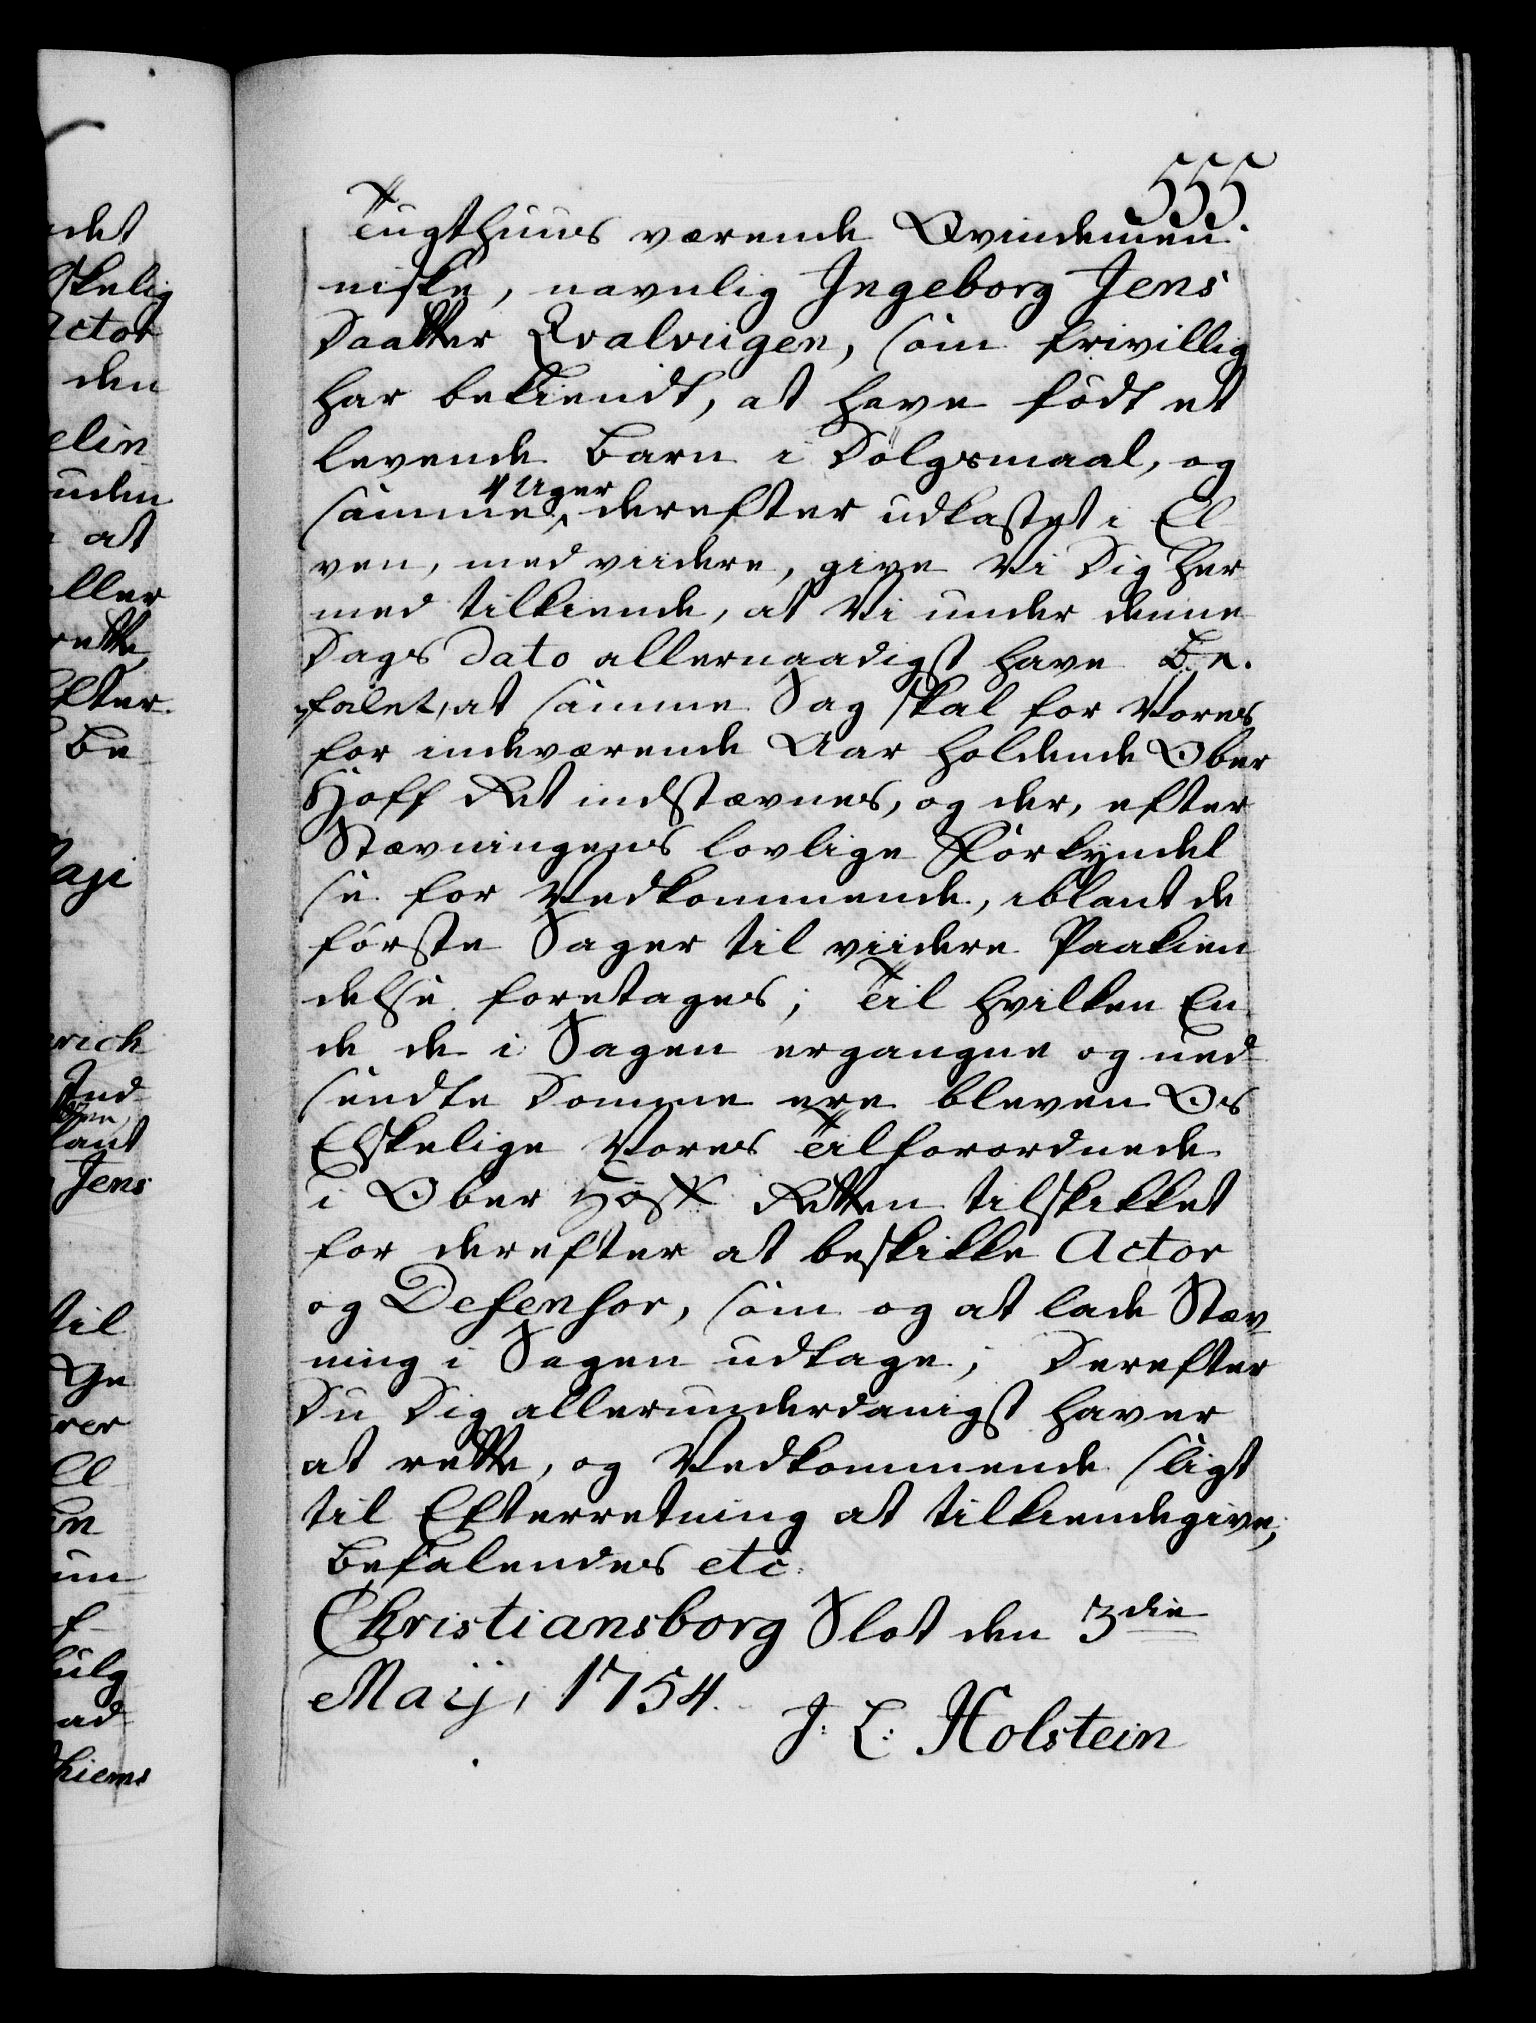 555
Tugthuus værende Qvindemen-
niske, navnlig Ingeborg Jens
Daatter Qvalviigen, som frivillig
har bekiendt, at have født et
levende Barn i Dølgsmaal, og
samme 4 Uger derefter udkastet i El-
ven, med viidere, give Vi Dig her
med tilkiende, at Vi under denne
Dags Dato allernaadigst have Be-
falet, at samme Sag skal for Vores
for indeværende Aar holdende Ober
Hoff Ret indstævnes, og der, efter
Stævningens lovlige Forkyndel
se for Vedkommende, iblant de
første Sager til viidere Paakien
delse foretages; Til hvilken En
de de i Sagen ergangne og ned
sendte Domme ere bleven Os
Elskelige Vores Tilforordnede
i Ober Hoff Retten tilskikket
for derefter at beskikke Actor
og Defensor, som og at lade Stæv
ning i Sagen udtage; Derefter
Du Dig allerunderdanigst haver
at rette, og Vedkommende sligt
til Efterretning at tilkiendegive;
Befalendes etc.
Christiansborg Slot den 3die
Maij, 1754.
J: L: Holstein